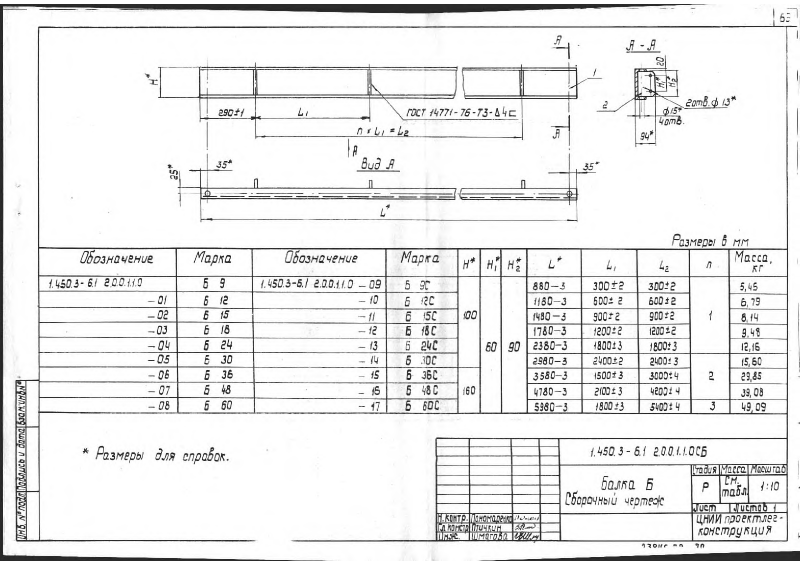 63
А
А - А
H*
1
20
H₁*
H₂*
2
2отв. ф 13*
ф15*
4отв.
94*
290±1
L₁
ГОСТ 14771-76-Т3-Δ4
n × L₁ = L₂
А
А
Вид А
35*
35*
25*
L*
Размеры в мм
Обозначение Марка Обозначение Марка H* H₁* H₂* L* L₁ L₂ n Масса, кг
1.450.3-6.1 2.0.0.1.1.0 Б 9 1.450.3-6.1 2.0.0.1.1.0 -09 Б 9С 100 60 90 880-3 300±2 300±2 1 5,45
-01 Б 12 -10 Б 12С 1180-3 600±2 600±2 6,79
-02 Б 15 -11 Б 15С 1480-3 900±2 900±2 8,14
-03 Б 18 -12 Б 18С 1780-3 1200±2 1200±2 9,48
-04 Б 24 -13 Б 24С 2380-3 1800±3 1800±3 12,16
-05 Б 30 -14 Б 30С 2980-3 2400±2 2400±3 2 15,60
-06 Б 36 -15 Б 36С 160 3580-3 1500±3 3000±4 29,85
-07 Б 48 -16 Б 48С 4780-3 2100±3 4200±4 39,08
-08 Б 60 -17 Б 60С 5980-3 1800±3 5400±4 3 49,09
* Размеры для справок.
Инв. № подл. Подпись и дата Взам. инв. №
1.450.3-6.1 2.0.0.1.1.0СБ
Балка Б
Сборочный чертеж
Стадия Масса Масштаб
Р См. табл. 1:10
Лист Листов 1
ЦНИИпроектлег-
конструкция
Н.контр. Пономаренко
Гл.констр. Птичкин
Инж. Шмагова